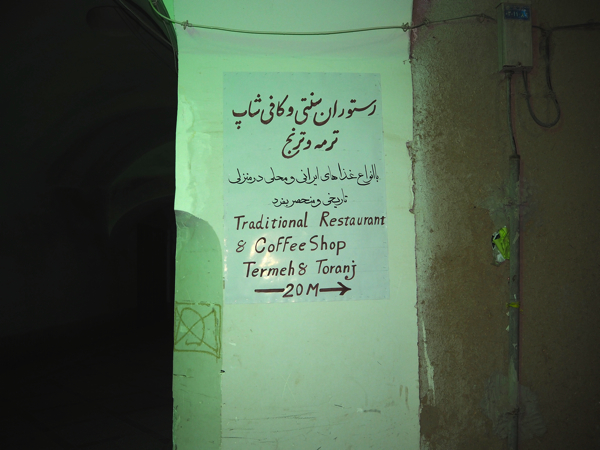 رستوران سنتی و کافی شاپ
ترمه و ترنج
باانواع غذاهای ایرانی و محلی در منزلی
تاریخی و منحصر بفرد
Traditional Restaurant
& Coffee Shop
Termeh & Toranj
20 M